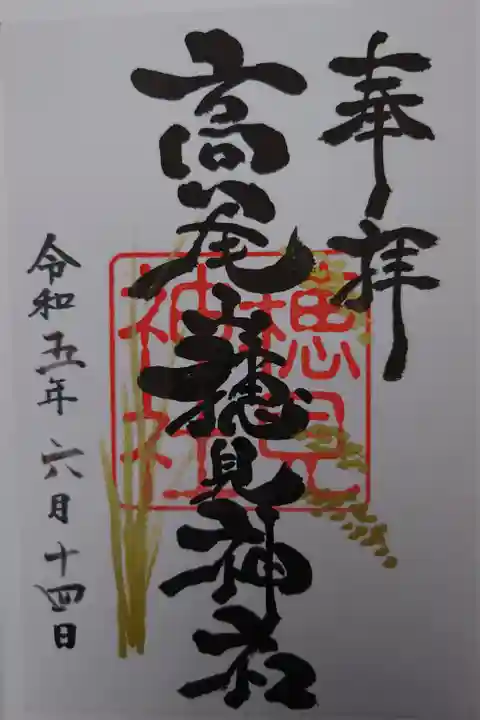 奉拝
高尾山穂見神社
穂見神社
令和五年六月十四日